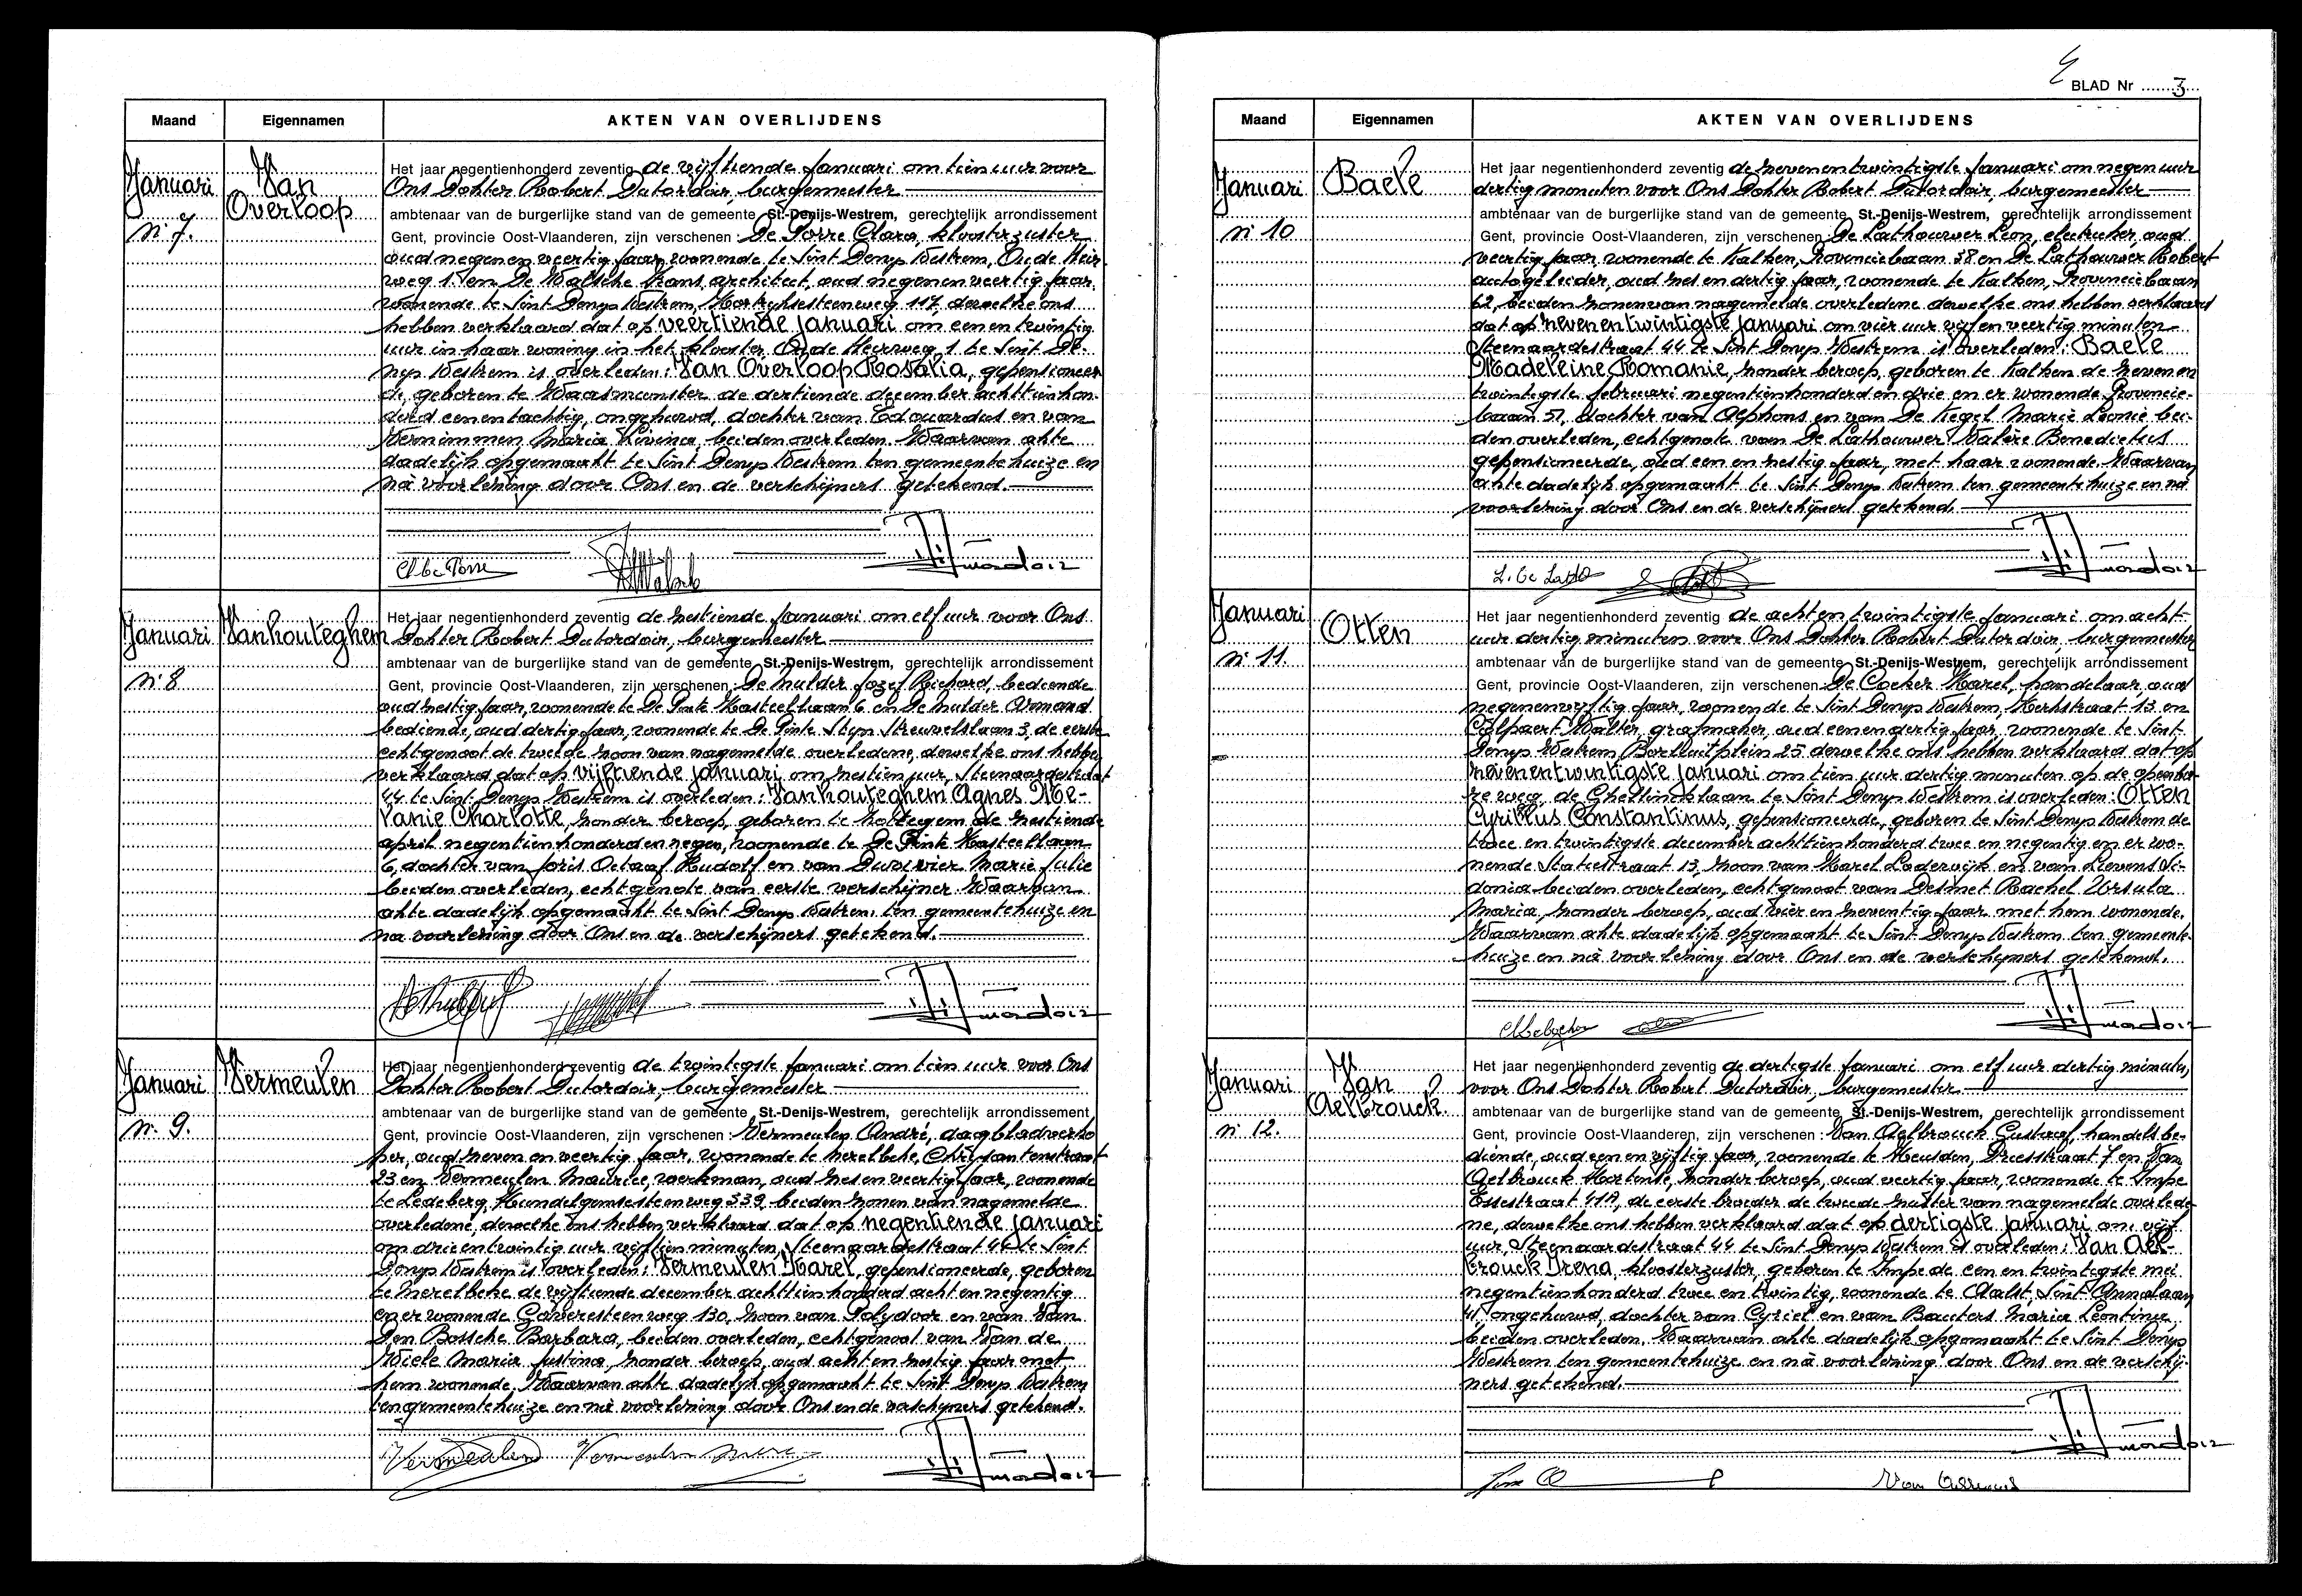 Maand Eigennamen AKTEN VAN OVERLIJDENS
Januari
N: 7.
Van
Overloop
Het jaar negentienhonderd zeventig de vijftiende Januari om tien uur voor
Ons Dokter Robert Dutordoir, burgemeester
ambtenaar van de burgerlijke stand van de gemeente St.-Denijs-Westrem, gerechtelijk arrondissement
Gent, provincie Oost-Vlaanderen, zijn verschenen : De Torre Clara, kloosterzuster
oud negenenveertig jaar, wonende te Sint Denys Westrem, Oude Heir-
weg 1. en De Walsche Frans, architect, oud negenenveertig jaar,
wonende te Sint Denys Westrem, Kortrijksesteenweg 117, dewelke ons
hebben verklaard dat op veertiende januari om eenentwintig
uur in haar woning in het klooster, Oude Heerweg 1 te Sint De-
nys Westrem is overleden: Van Overloop Rosalia, gepensioneer-
de, geboren te Waasmunster de dertiende december achttienhon-
derd eenentachtig, ongehuwd, dochter van Edouardus en van
Vernimmen Maria Livina, beiden overleden. Waarvan akte
dadelijk opgemaakt te Sint Denys Westrem ten gemeentehuize en
na voorlezing door Ons en de verschijners getekend.
Cl De Torre
Januari
N: 8
Vanhouteghem
Het jaar negentienhonderd zeventig de zestiende Januari om elf uur voor Ons
Dokter Robert Dutordoir, burgemeester
ambtenaar van de burgerlijke stand van de gemeente St.-Denijs-Westrem, gerechtelijk arrondissement
Gent, provincie Oost-Vlaanderen, zijn verschenen : De Mulder Jozef Richard, bediende
oud zestig jaar, wonende te De Pinte Kasteellaan 6 en De Mulder Armand
bediende, oud dertig jaar, wonende te De Pinte Stijn Streuvelslaan 3, de eerste
echtgenoot de tweede zoon van nagemelde overledene, dewelke ons hebben
verklaard dat op vijftiende januari om zestien uur, Steenaardestraat
44 te Sint Denys Westrem is overleden: Vanhouteghem Agnes Me-
lanie Charlotte, zonder beroep, geboren te Nottegem de zestiende
april negentienhonderd en negen, wonende te De Pinte Kasteellaan
6, dochter van Joris Octaaf Rudolf en van Duvivier Marie Julie
beiden overleden, echtgenote van eerste verschijner Waarvan
akte dadelijk opgemaakt te Sint Denys Westrem. ten gemeentehuize en
na voorlezing door Ons en de verschijners getekend.
Januari
N: 9.
Vermeulen
Het jaar negentienhonderd zeventig de twintigste Januari om tien uur voor Ons
Dokter Robert Dutordoir, burgemeester
ambtenaar van de burgerlijke stand van de gemeente St.-Denijs-Westrem, gerechtelijk arrondissement
Gent, provincie Oost-Vlaanderen, zijn verschenen : Vermeulen André, dagbladverko-
per, oud zeven en veertig jaar, wonende te Merelbeke, Chrijsantenstraat
23 en Vermeulen Maurice, werkman, oud zes en veertig jaar, wonende
te Ledeberg, Hundelgemsesteenweg 339, beiden zonen van nagemelde
overledene, dewelke ons hebben verklaard dat op negentiende januari
om drieentwintig uur vijftien minuten, Steenaardestraat 44 te Sint
Denys Westrem is overleden: Vermeulen Karel, gepensioneerde, geboren
te Merelbeke de vijftiende december achttienhonderd acht en negentig
en er wonende Gaveresteenweg 130, zoon van Polydoor en van Van
Den Bossche Barbara, beiden overleden, echtgenoot van Van de
Wiele Maria Justina, zonder beroep, oud acht en zestig jaar met
hem wonende. Waarvan akte dadelijk opgemaakt te Sint Denys Westrem
ten gemeentehuize en na voorlezing door Ons en de verschijners getekend.
BLAD Nr 3
Maand Eigennamen AKTEN VAN OVERLIJDENS
Januari
N: 10
Baele
Het jaar negentienhonderd zeventig de zevenentwintigste Januari om negen uur
dertig minuten voor Ons Dokter Robert Dutordoir, burgemeester
ambtenaar van de burgerlijke stand van de gemeente St.-Denijs-Westrem, gerechtelijk arrondissement
Gent, provincie Oost-Vlaanderen, zijn verschenen : De Lathouwer Leon, electrieker, oud
veertig jaar, wonende te Kalken, Provinciebaan 38 en De Lathouwer Robert
autogeleider, oud zes en dertig jaar, wonende te Kalken, Provinciebaan
62, beiden zonen van nagemelde overledene dewelke ons hebben verklaard
dat op zevenentwintigste januari om vier uur vijf en veertig minuten
Steenaardestraat 44 te Sint Denys Westrem is overleden: Baele
Madeleine Romanie, zonder beroep, geboren te Kalken de zeven en
twintigste februari negentienhonderd en drie en er wonende Provincie-
baan 51, dochter van Alphons en van De Kegel Marie Leonie bei-
den overleden, echtgenote van De Lathouwer Valère Benedictus
gepensioneerde, oud een en zestig jaar, met haar wonende. Waarvan
akte dadelijk opgemaakt te Sint Denys Westrem ten gemeentehuize en na
voorlezing door Ons en de verschijners getekend.
Januari
N: 11.
Otten
Het jaar negentienhonderd zeventig de acht en twintigste Januari om acht
uur dertig minuten voor Ons Dokter Robert Dutordoir, burgemeester
ambtenaar van de burgerlijke stand van de gemeente St.-Denijs-Westrem, gerechtelijk arrondissement
Gent, provincie Oost-Vlaanderen, zijn verschenen : De Cocker Karel, handelaar, oud
negenenvijftig jaar, wonende te Sint Denys Westrem, Kerkstraat 13 en
Colpaert Walter, grafmaker, oud eenendertig jaar, wonende te Sint
Denys Westrem Borluutplein 25 dewelke ons hebben verklaard dat op
zevenentwintigste januari om tien uur dertig minuten op de openba-
re weg, de Ghellincklaan te Sint Denys Westrem is overleden: Otten
Cyrillus Constantinus, gepensioneerde, geboren te Sint Denys Westrem de
twee en twintigste december achttienhonderd twee en negentig en er wo-
nende Statiestraat 13, zoon van Karel Lodewijk en van Lievens Si-
donia beiden overleden, echtgenoot van Desmet Rachel Ursula
Maria, zonder beroep, oud vier en zeventig jaar met hem wonende.
Waarvan akte dadelijk opgemaakt te Sint Denys Westrem ten gemeente-
huize en na voorlezing door Ons en de verschijners getekend.
Januari
N: 12.
Van
Aelbrouck.
Het jaar negentienhonderd zeventig de dertigste Januari om elf uur dertig minuten,
voor Ons Dokter Robert Dutordoir, burgemeester
ambtenaar van de burgerlijke stand van de gemeente St.-Denijs-Westrem, gerechtelijk arrondissement
Gent, provincie Oost-Vlaanderen, zijn verschenen : Van Aelbrouck Gustaaf, handelsbe-
diende, oud een en vijftig jaar, wonende te Heusden, Dreesstraat 7 en Van
Aelbrouck Hortense, zonder beroep, oud veertig jaar, wonende te Impe
Essestraat 41A, de eerste broeder de tweede zuster van nagemelde overlede-
ne, dewelke ons hebben verklaard dat op dertigste januari om vijf
uur, Steenaardestraat 44 te Sint Denys Westrem is overleden: Van Ael-
brouck Irena, kloosterzuster, geboren te Impe de een en twintigste mei
negentienhonderd twee en twintig, wonende te Aalst, Sint Annalaan
41, ongehuwd, dochter van Cyriel en van Bauters Maria Leontine,
beiden overleden. Waarvan akte dadelijk opgemaakt te Sint Denys
Westrem ten gemeentehuize en na voorlezing door Ons en de verschij-
ners getekend.